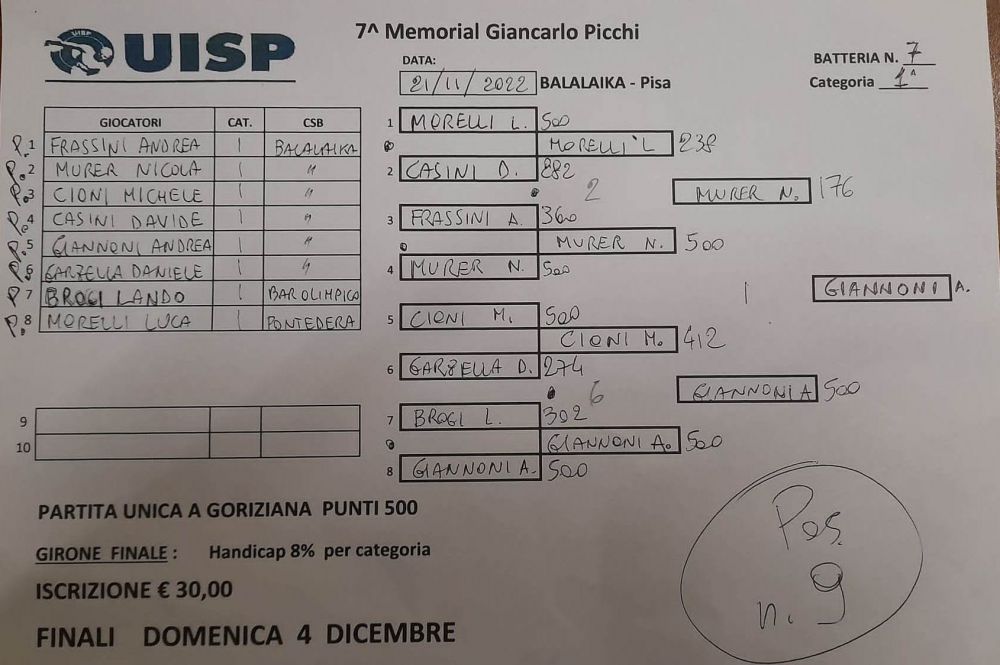 UISP
7^ Memorial Giancarlo Picchi
DATA:
21/11/2022 BALALAIKA - Pisa
BATTERIA N. 7
Categoria 1^
GIOCATORI CAT. CSB
P.1 FRASSINI ANDREA 1 BALALAIKA
P.2 MURER NICOLA 1 "
P.3 CIONI MICHELE 1 "
P.4 CASINI DAVIDE 1 "
P.5 GIANNONI ANDREA 1 "
P.6 GARZELLA DANIELE 1 "
P.7 BROGI LANDO 1 BAR OLIMPICO
P.8 MORELLI LUCA 1 PONTEDERA
9
10
1 MORELLI L. 500
MORELLI L 238
2 CASINI D. 282
2 MURER N. 176
3 FRASSINI A. 360
MURER N. 500
4 MURER N. 500
1 GIANNONI A.
5 CIONI M. 500
CIONI M. 412
6 GARZELLA D. 274
6 GIANNONI A 500
7 BROGI L. 302
GIANNONI A. 500
8 GIANNONI A. 500
PARTITA UNICA A GORIZIANA PUNTI 500
GIRONE FINALE : Handicap 8% per categoria
ISCRIZIONE € 30,00
FINALI DOMENICA 4 DICEMBRE
Pos.
n. 9